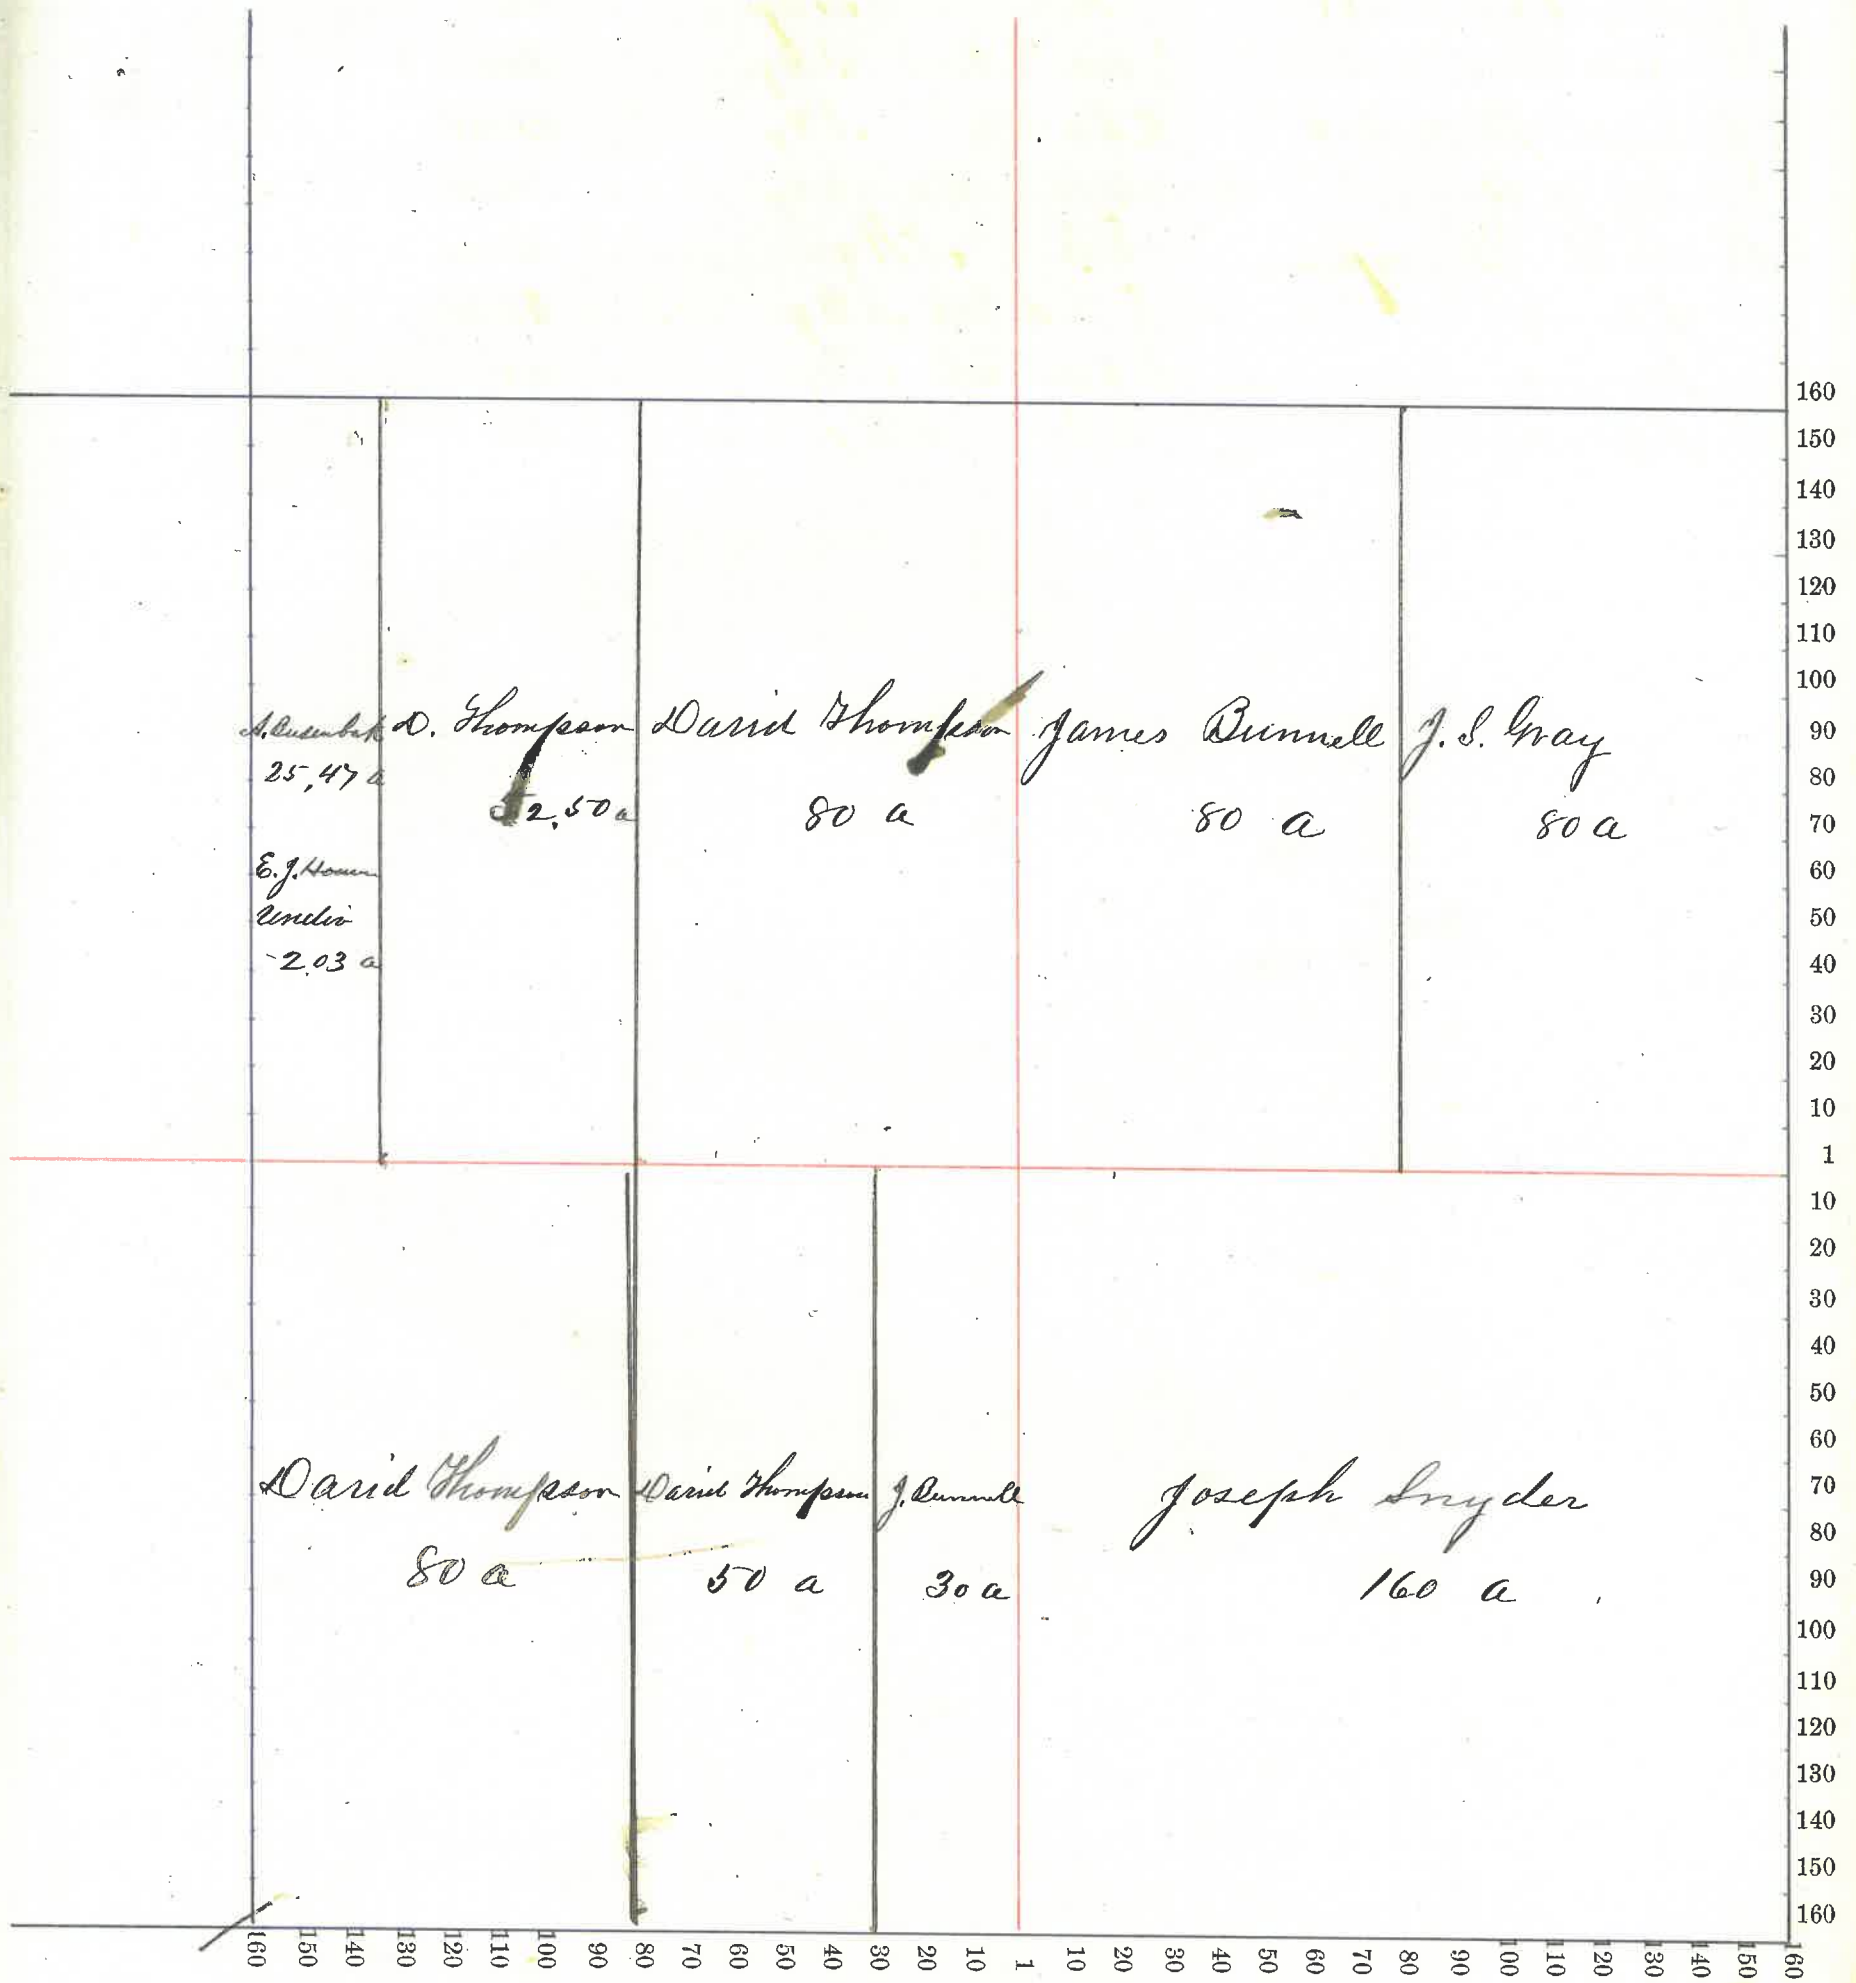 160
150
140
130
120
110
100
90
80
70
60
50
40
30
20
10
1
10
20
30
40
50
60
70
80
90
100
110
120
130
140
150
160
A.
25,47 a
E.J.
Undiv
2.03 a
D. Thompson
52.50 a
David Thompson
80 a
James Bunnell
80 a
J. S. Gray
80 a
David Thompson
80 a
David Thompson
50 a
J. Bunnell
30 a
Joseph Snyder
160 a
160 150 140 130 120 110 100 90 80 70 60 50 40 30 20 10 1 10 20 30 40 50 60 70 80 90 100 110 120 130 140 150 160